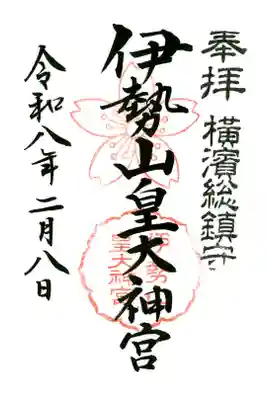 奉拝 横濱総鎮守
伊勢山皇大神宮
令和八年二月八日
伊勢山
皇大神宮